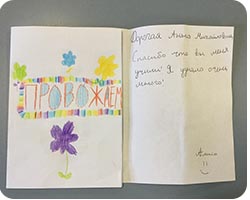 ПРОВОЖАЕМ
Дорогая Анна Михайловна
Спасибо что вы меня
учили! Я узнала очень
много!
Алиса